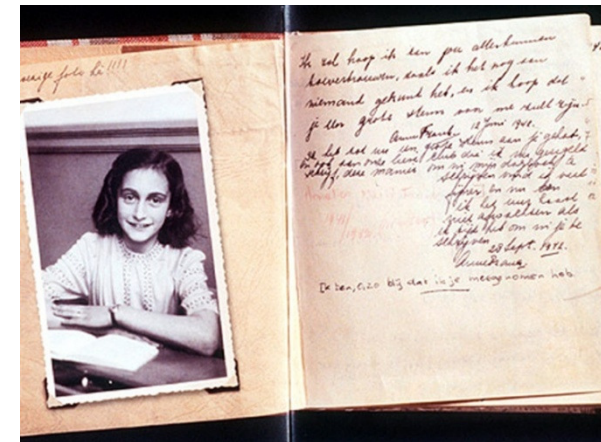 foto hè!!!!
Ik zal hoop ik aan jou alles kunnen
toevertrouwen, zoals ik het nog aan
niemand gekunt heb, en ik hoop dat
je een grote steun voor me zult zijn.
Anne Frank. 12 Juni 1942.
Ik heb tot nu een grote steun aan je gehad,
en ook aan onze lieve club die ik nu geregeld
schrijf, deze manier om in mijn dagboek te
schrijven vind ik veel
fijner en nu kan
ik het uur haast
niet afwachten als
ik tijd heb om in je te
schrijven
28 Sept. 1942.
Anne Frank
Ik ben, o, zo blij dat ik je meegenomen heb